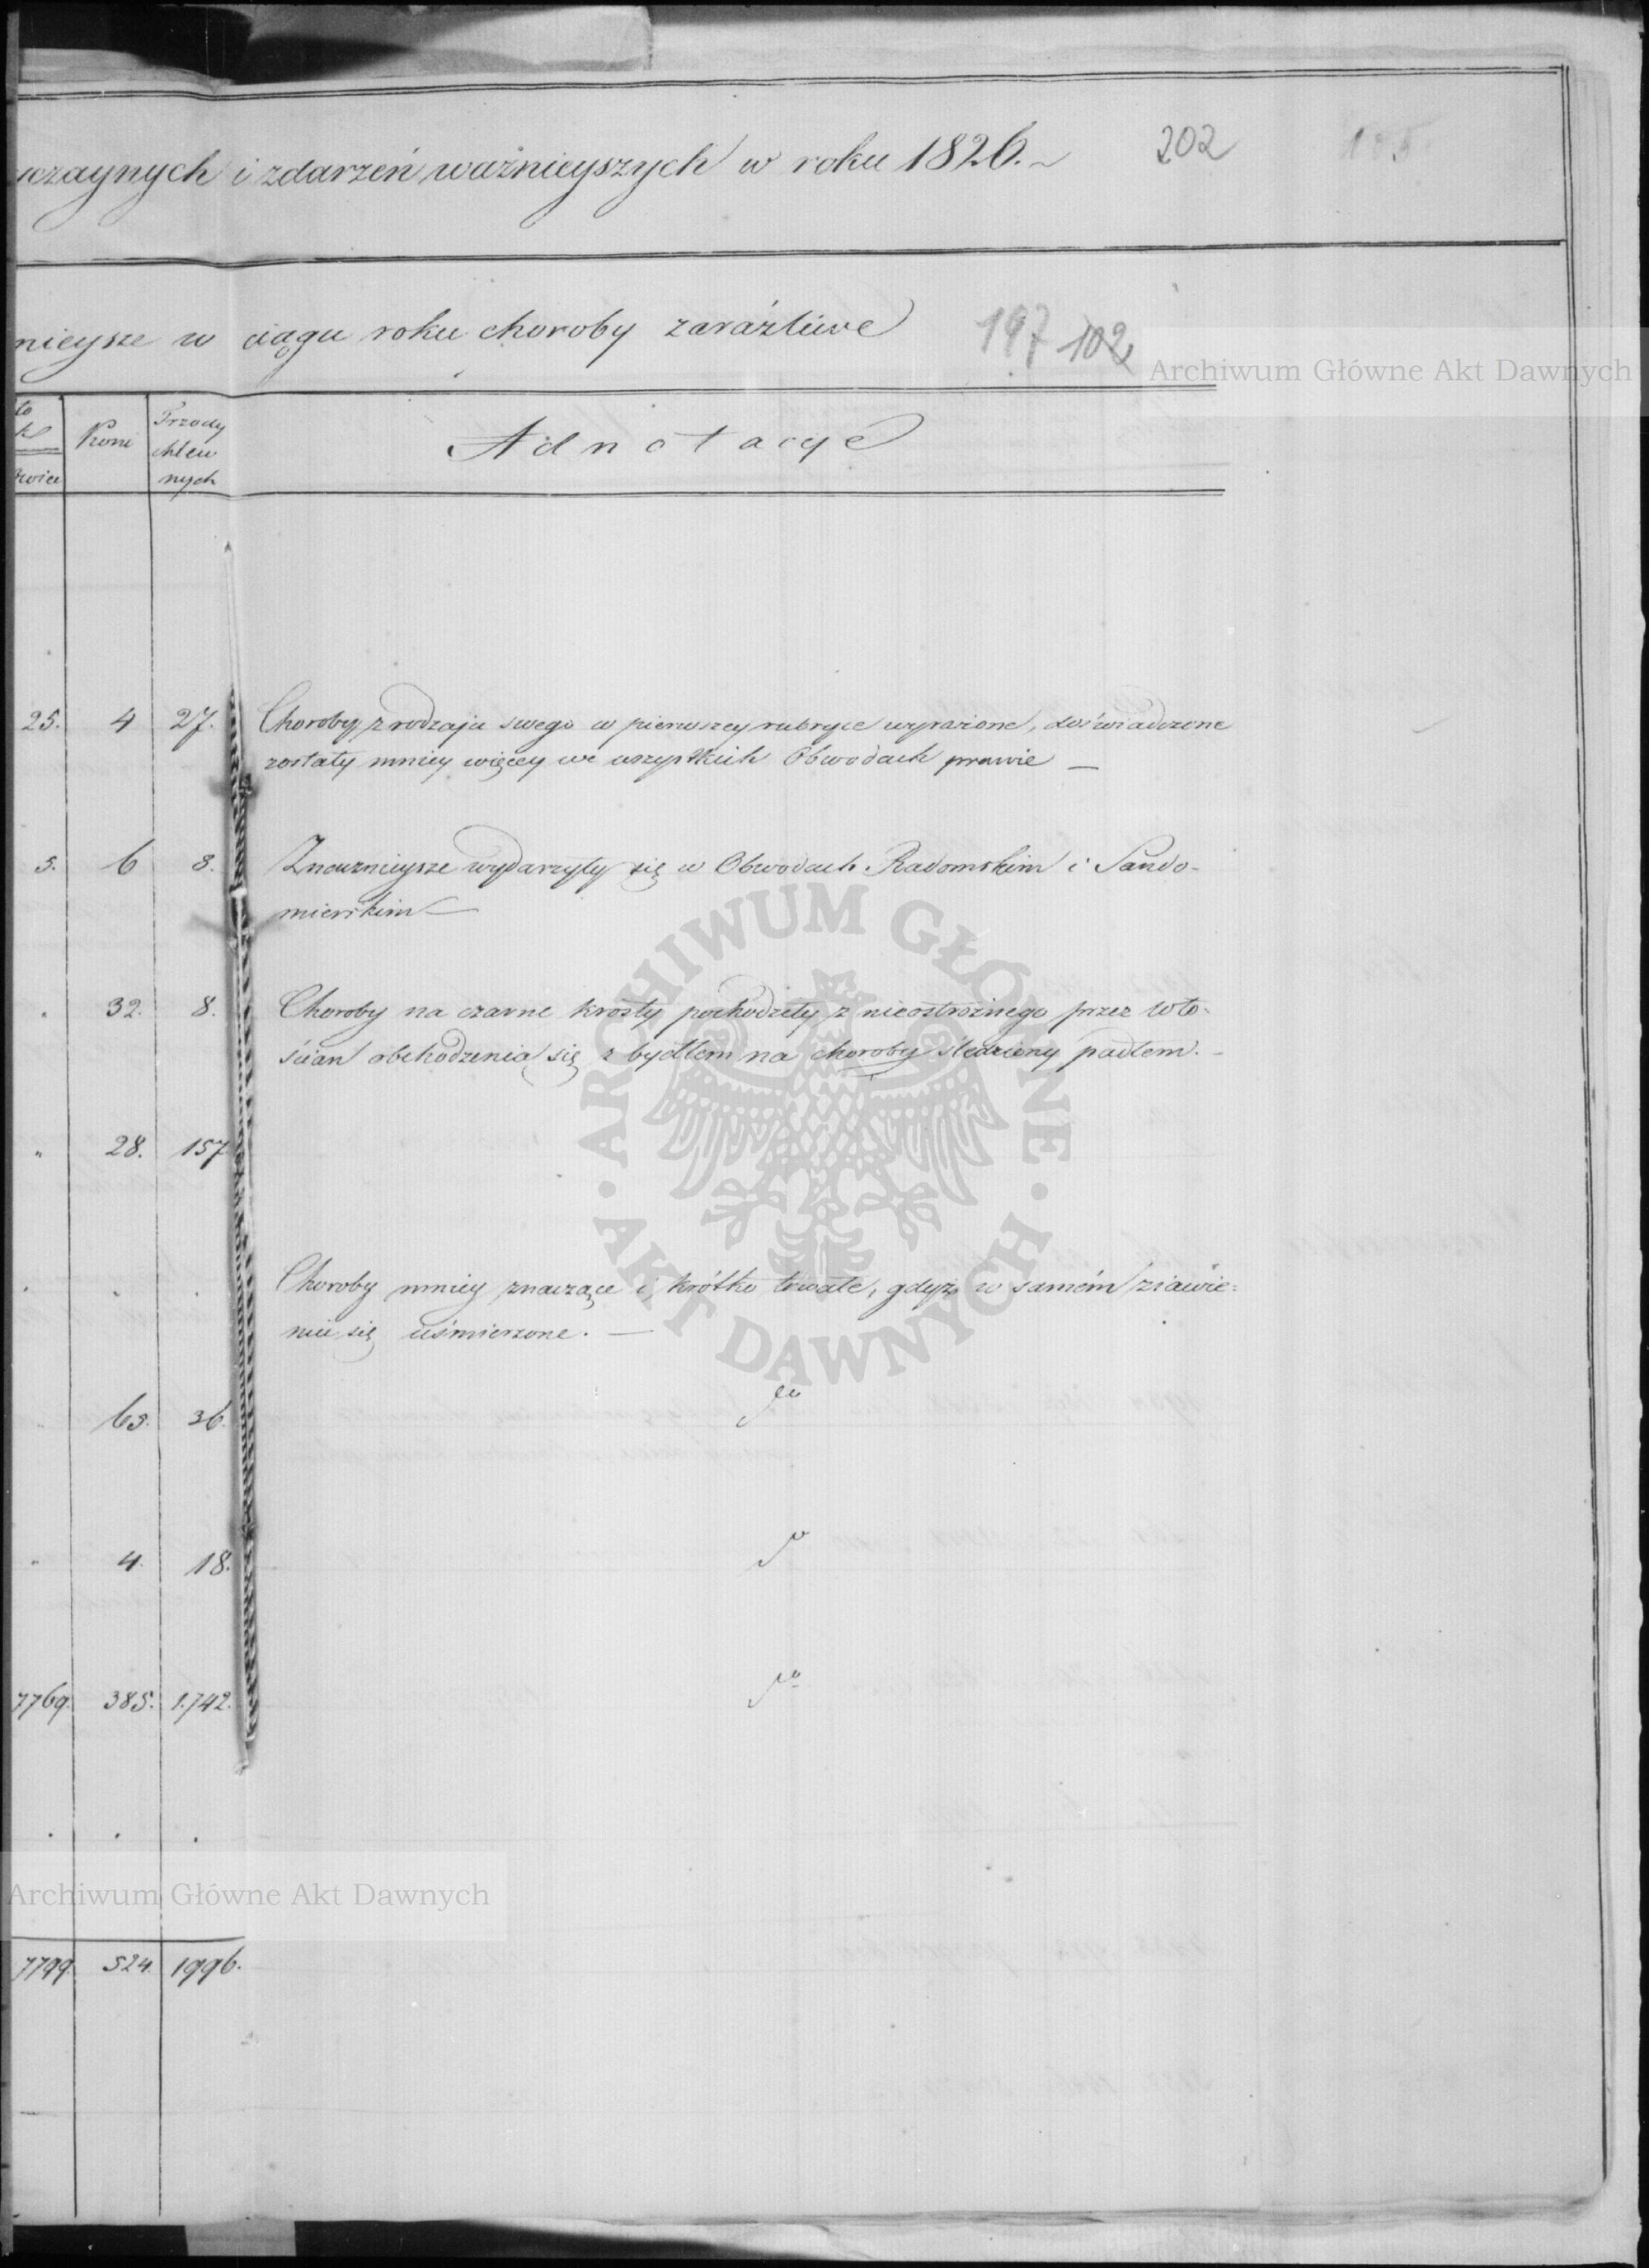 czaynych i zdarzeń ważnieyszych w roku 1826.
202
nieysze w ciągu roku choroby zaraźliwe
197 102
Archiwum Główne Akt Dawnych
Koni
Trzody chlew nych
Adnotacye
25. 4 27. Choroby z rodzaju swego w pierwszey rubryce wyrażone, doświadczone
zostały mniey więcey we wszystkich Obwodach prawie —
5. 6 8. Znacznieysze wydarzyły się w Obwodach Radomskim i Sando-
mierskim —
32. 8. Choroby na czarne krosty pochodziły z nieostrożnego przez wło-
ścian obchodzenia się z bydłem na choroby śledziony padłem. -
" 28. 157
Choroby mniey znaczące i krótko trwałe, gdyż w samém ziawie=
niu się uśmierzone. —
63. 36.
4. 18.
7769. 385. 1.742.
Archiwum Główne Akt Dawnych
7799. 524. 1996.
ARCHIWUM GŁÓWNE · AKT DAWNYCH ·